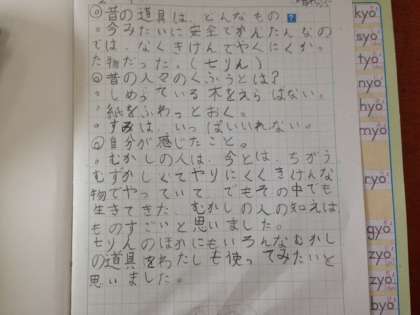 ◎昔の道具は、どんなもの?
。今みたいに安全でかんたんなの
では、なくきけんでやくにくかっ
た物だった。(七りん)
◎昔の人々のくふうとは?
。しめっている木をえらばない。
。紙をふわっとおく。
。すみは、いっぱいいれない。
◎自分が感じたこと。
。むかしの人は、今とは、ちがう
むずかしくてやりにくくきけんな
物でやっていて、でもその中でも
生きてきた、むかしの人の知えは
ものすごいと思いました。
七りんのほかにもいろんなむかし
の道具をわたしも使ってみたいと
思いました。
kyo
syo
tyo
nyo
hyo
myo
ryo
gyo
zyo
zyo
byo